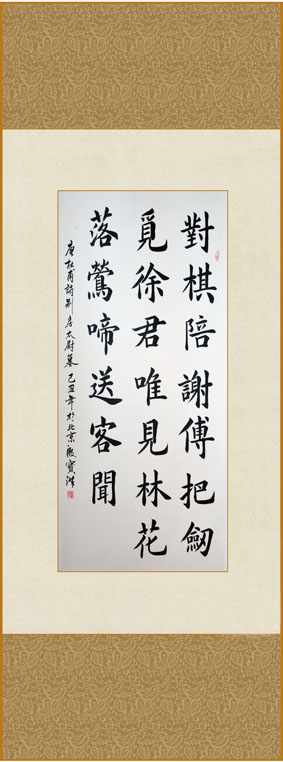 對棋陪謝傅把劒
覓徐君唯見林花
落鶯啼送客聞
唐杜甫詩別房太尉墓己丑年於北京殷寶洪